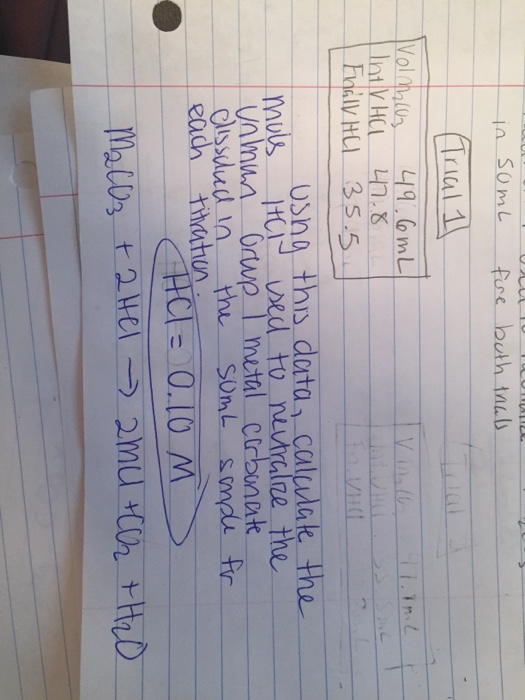 in 50mL for both trials
Trial 1
Vol M2CO3 49.6mL
Int VHCl 47.8
Final VHCl 35.5
using this data, calculate the
mols HCl used to neutralize the
unknown Group 1 metal carbonate
dissolved in the 50mL sample for
each titration.
HCl = 0.10 M
M2CO3 + 2HCl → 2MCl + CO2 + H2O